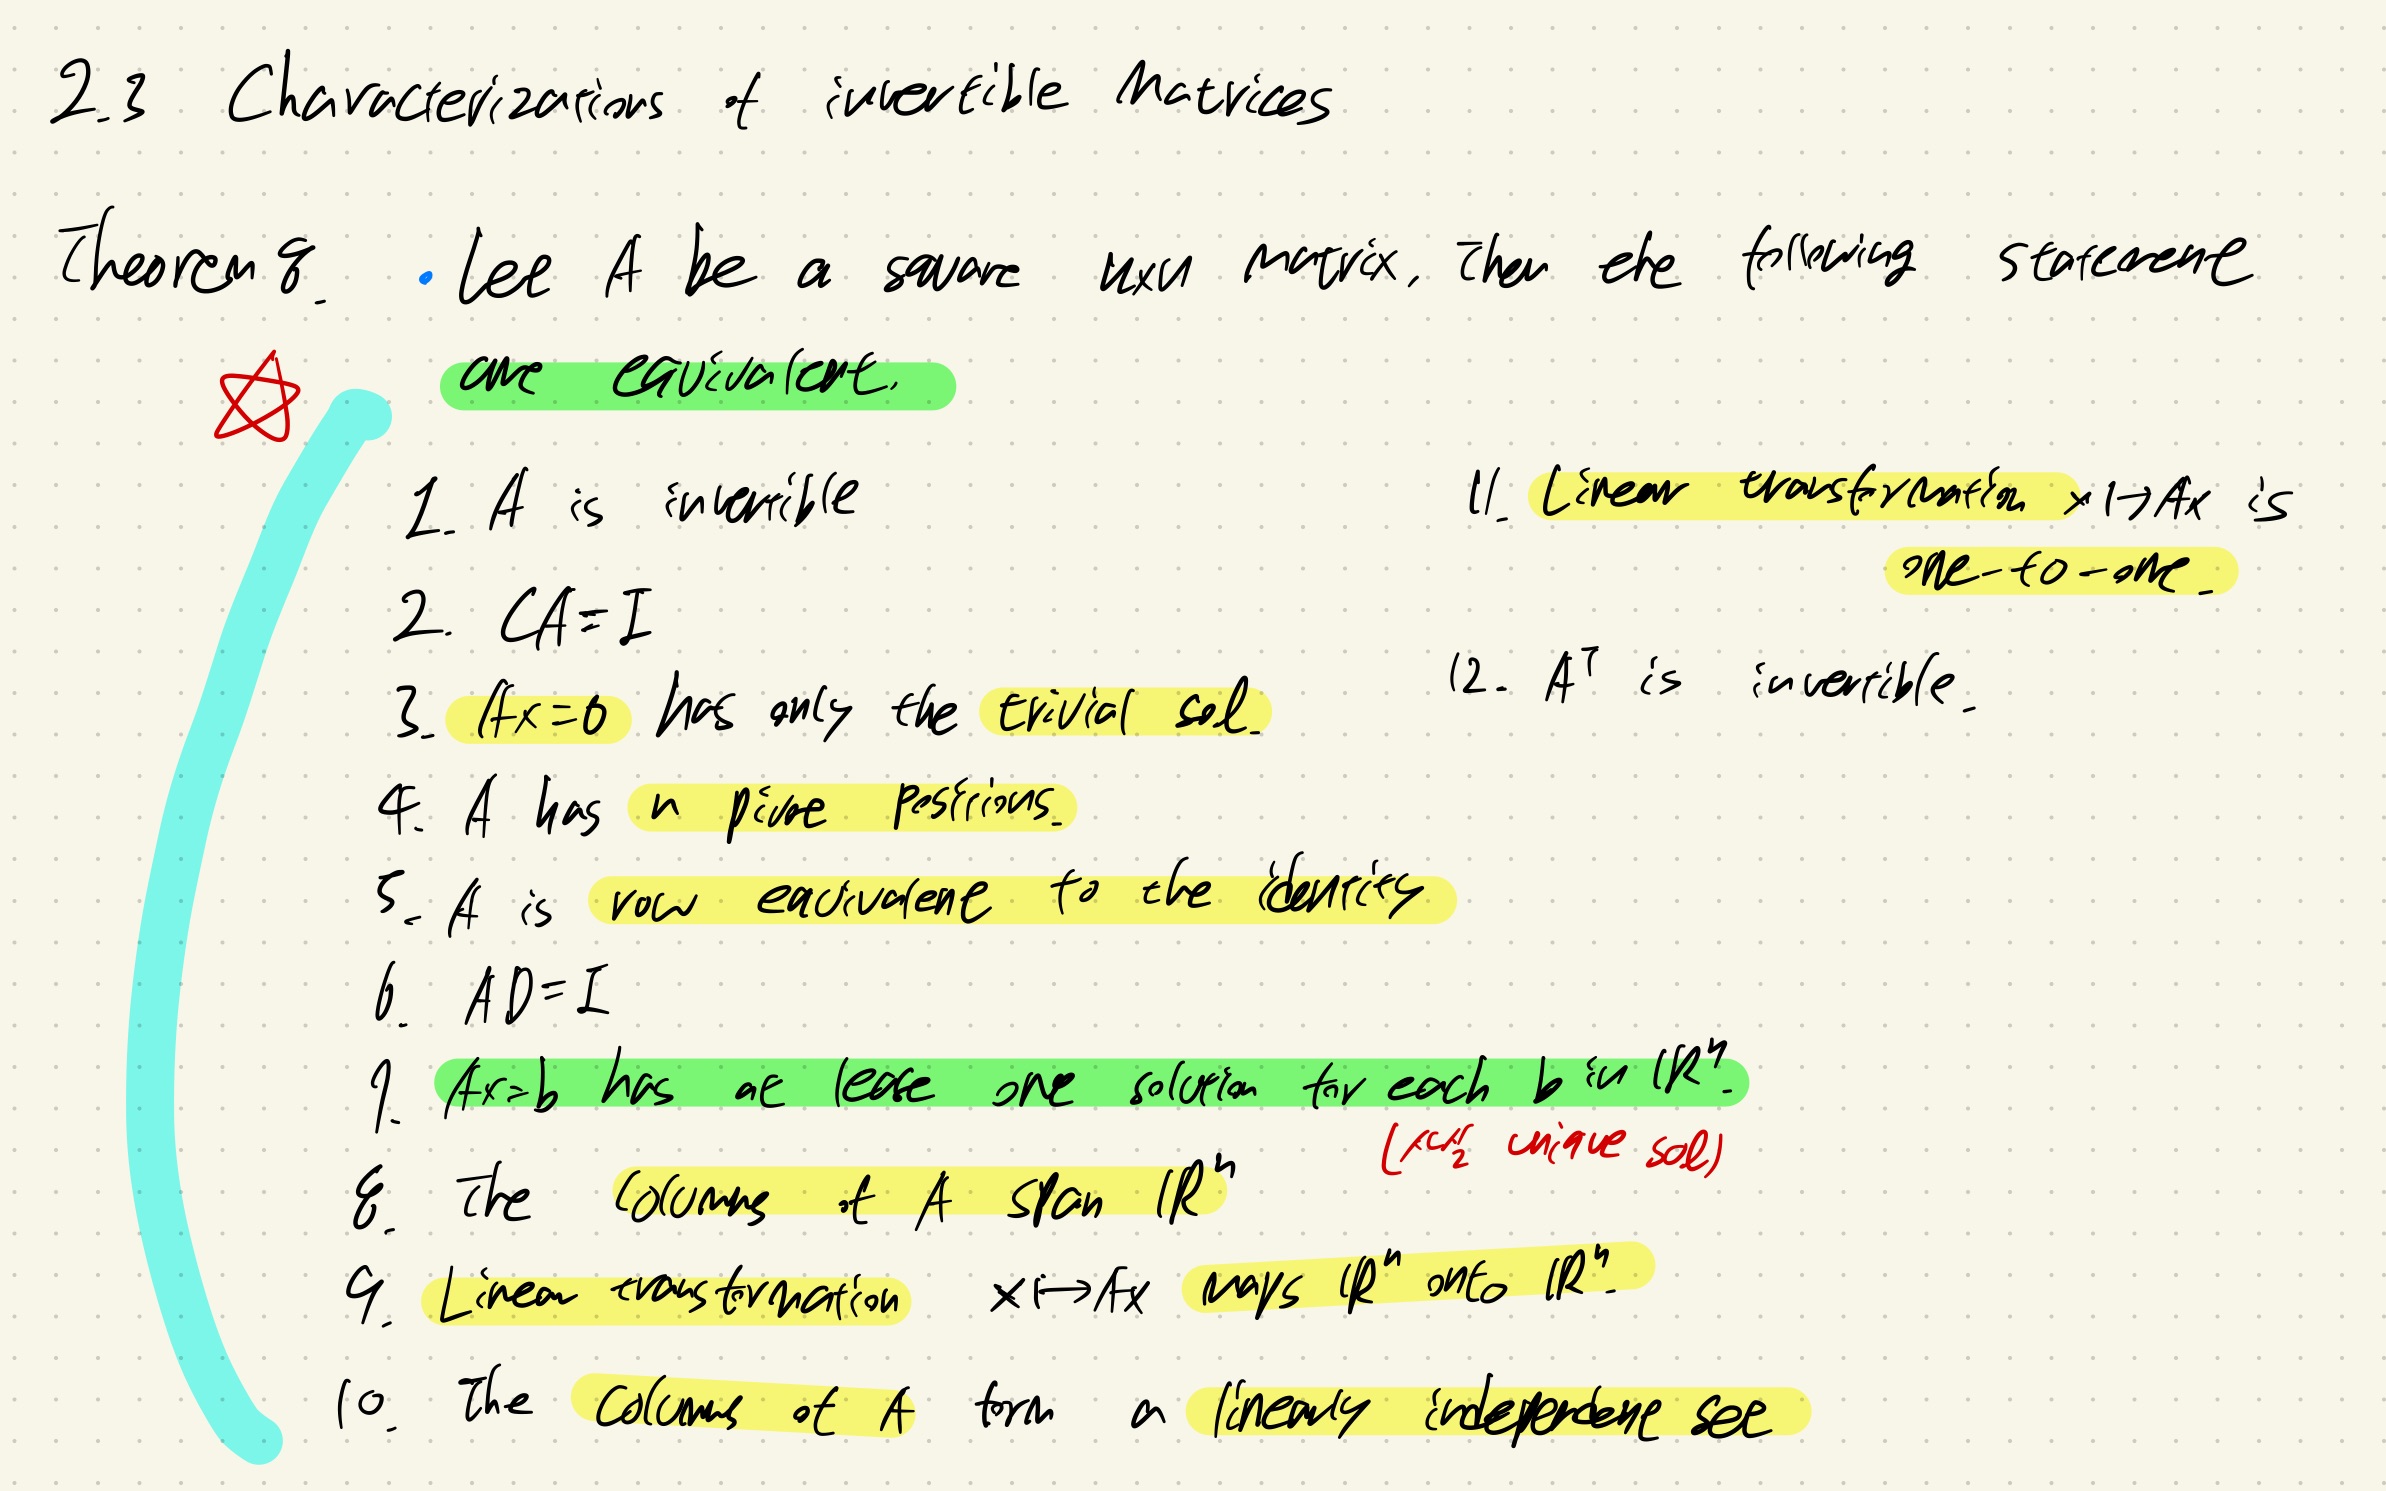 2.3 Characterizations of invertible Matrices
Theorem 8. • Let A be a square nxn matrix. Then the following statement
are equivalent.
1. A is invertible
2. CA=I
3. Ax=0 has only the trivial sol.
4. A has n pivot positions.
5. A is row equivalent to the identity
6. AD=I
7. Ax=b has at least one solution for each b in ℝⁿ.
( unique sol)
8. The columns of A span ℝⁿ
9. Linear transformation x↦Ax maps ℝⁿ onto ℝⁿ.
10. The columns of A form a linearly independent set
11. Linear transformation x↦Ax is
one-to-one.
12. Aᵀ is invertible.